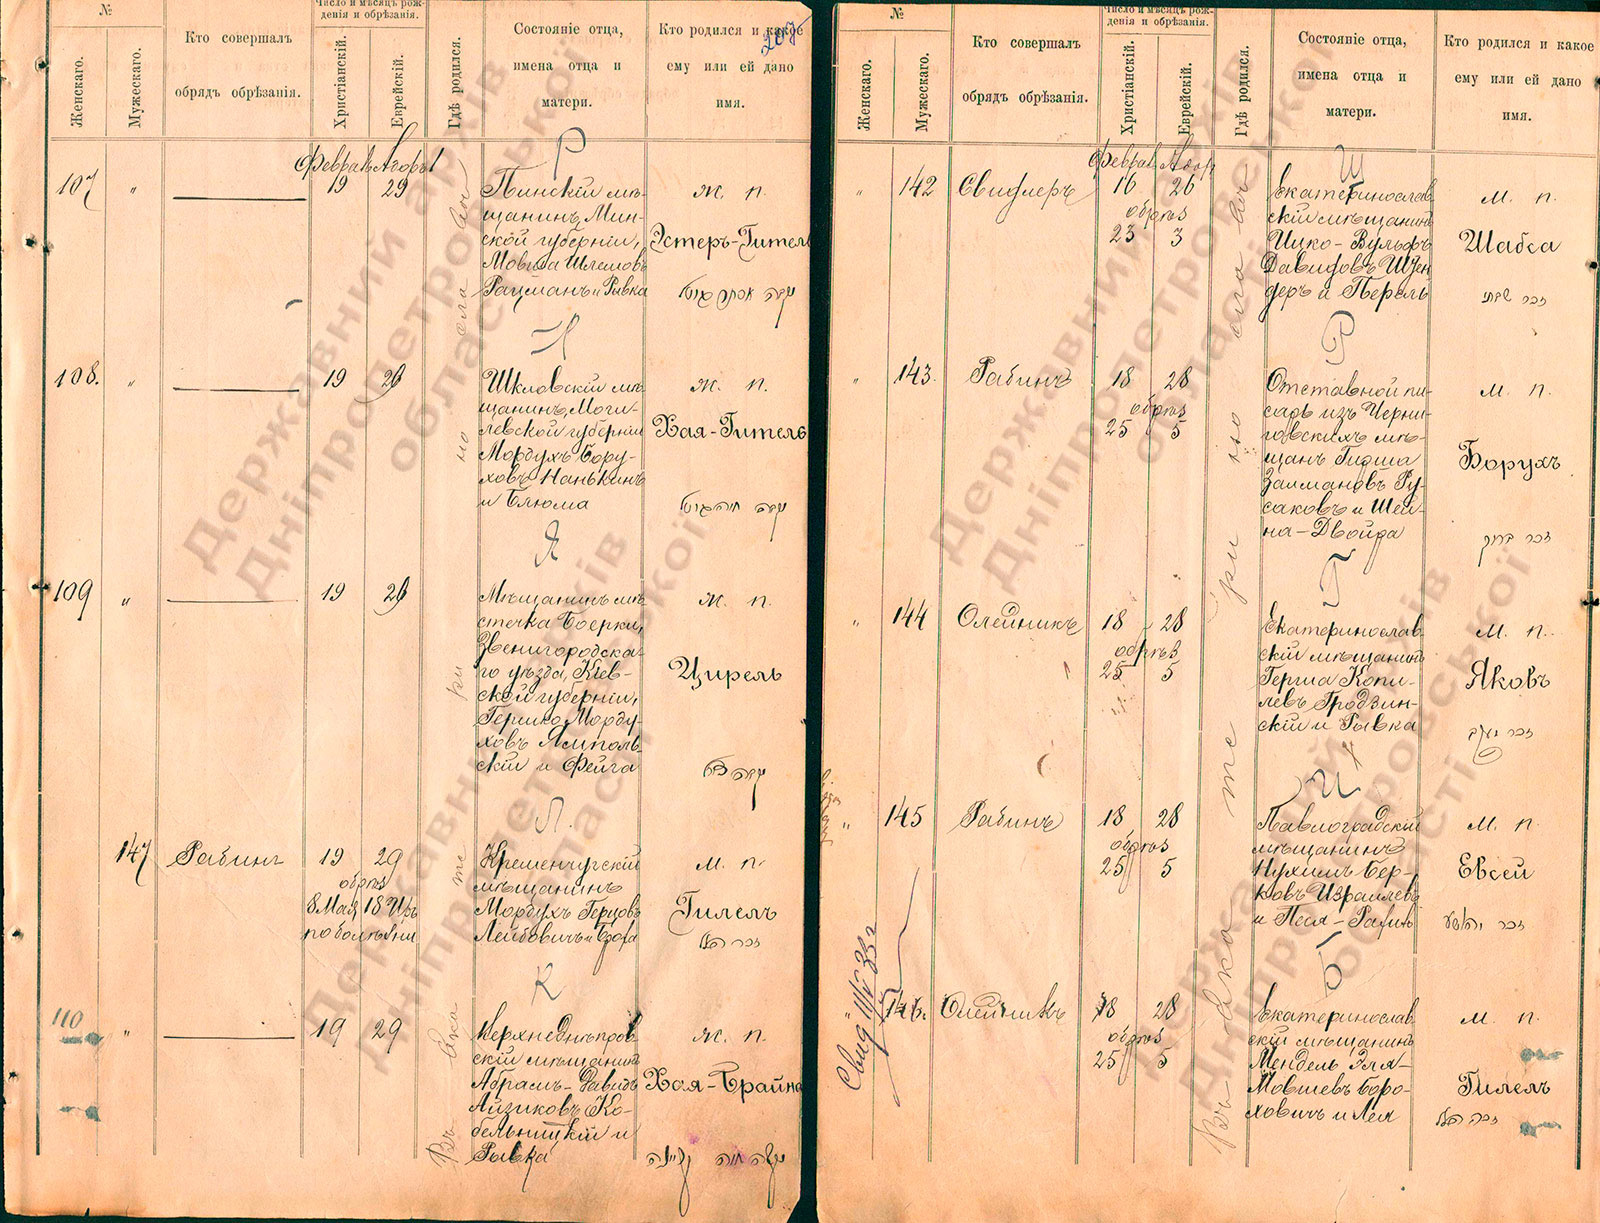 207
№
Женскаго.
Мужескаго.
Кто совершалъ
обрядъ обрѣзанія.
Число и мѣсяцъ рож-
денія и обрѣзанія.
Христіанскій.
Еврейскій.
Гдѣ родился.
Состояніе отца,
имена отца и
матери.
Кто родился и какое
ему или ей дано
имя.
Въ Екате ри но сла вѣ
Р
107 " Феврал. Адоръ 1
19 29
Пинскій мѣ-
щанинъ, Мин-
ской губерніи,
Мовша Шлемовъ
Рацманъ и Рывка
ж. п.
Эстеръ-Гитель
Н
108. " 19 26
Шкловскій мѣ-
щанинъ, Моги-
левской губерніи
Мордухъ Бору-
ховъ Нанькинъ
и Блюма
ж. п.
Хая-Гитель
Я
109 " 19 26
Мѣщанинъ мѣ-
стечка Боерки,
Звенигородска-
го уѣзда, Кіев-
ской губерніи,
Гершко Морду-
ховъ Ямполь-
скій и Фейга
ж. п.
Цирель
Л.
147 Рабинъ 19 29
обрѣз
8 Мая 18 Иръ
по болѣзни
Кременчугскій
мѣщанинъ
Мордухъ Герцовъ
Лейбовичъ и
м. п.
Гилель
זכר הלל
К
110 " 19 29
Верхнеднѣпров
скій мѣщанинъ
Абрамъ-Давидъ
Айзиковъ Ко-
бельницкій и
Рывка
ж. п.
Хая-Брайна
№
Женскаго.
Мужескаго.
Кто совершалъ
обрядъ обрѣзанія.
Число и мѣсяцъ рож-
денія и обрѣзанія.
Христіанскій.
Еврейскій.
Гдѣ родился.
Состояніе отца,
имена отца и
матери.
Кто родился и какое
ему или ей дано
имя.
Въ Екате ри но сла вѣ
Ш
" 142 Свифлеръ Феврал. Адоръ
16 26
обрѣз
23 3
Екатеринослав
скій мѣщанинъ
Ицко-Вульфъ
Давидовъ
деръ и Перель
м. п.
Шабса
Р
" 143. Рабинъ 18 28
обрѣз
25 5
Отставной пи-
сарь изъ Черни-
говскихъ мѣ-
щанъ Гирша
Залмановъ Ру-
саковъ и Шей-
на-Двойра
м. п.
Борухъ
זכר ברוך
Г
" 144 Олейникъ 18 28
обрѣз
25 5
Екатеринослав
скій мѣщанинъ
Герша Копи-
левъ Гродзин-
скій и Рывка
м. п.
Яковъ
זכר יעקב
И
" 145 Рабинъ 18 28
обрѣз
25 5
Павлоградскій
мѣщанинъ
Нухимъ Бер-
ковъ Израилевъ
и Песя-Рахиль
м. п.
Евсей
זכר יהושע
Б
" 146. Олейникъ 18 28
обрѣз
25 5
Екатеринослав
скій мѣщанинъ
Мендель Эля-
Мовшевъ Боро-
ховичъ и Лея
м. п.
Гилель
זכר הלל
Державний архів
Дніпропетровської
області